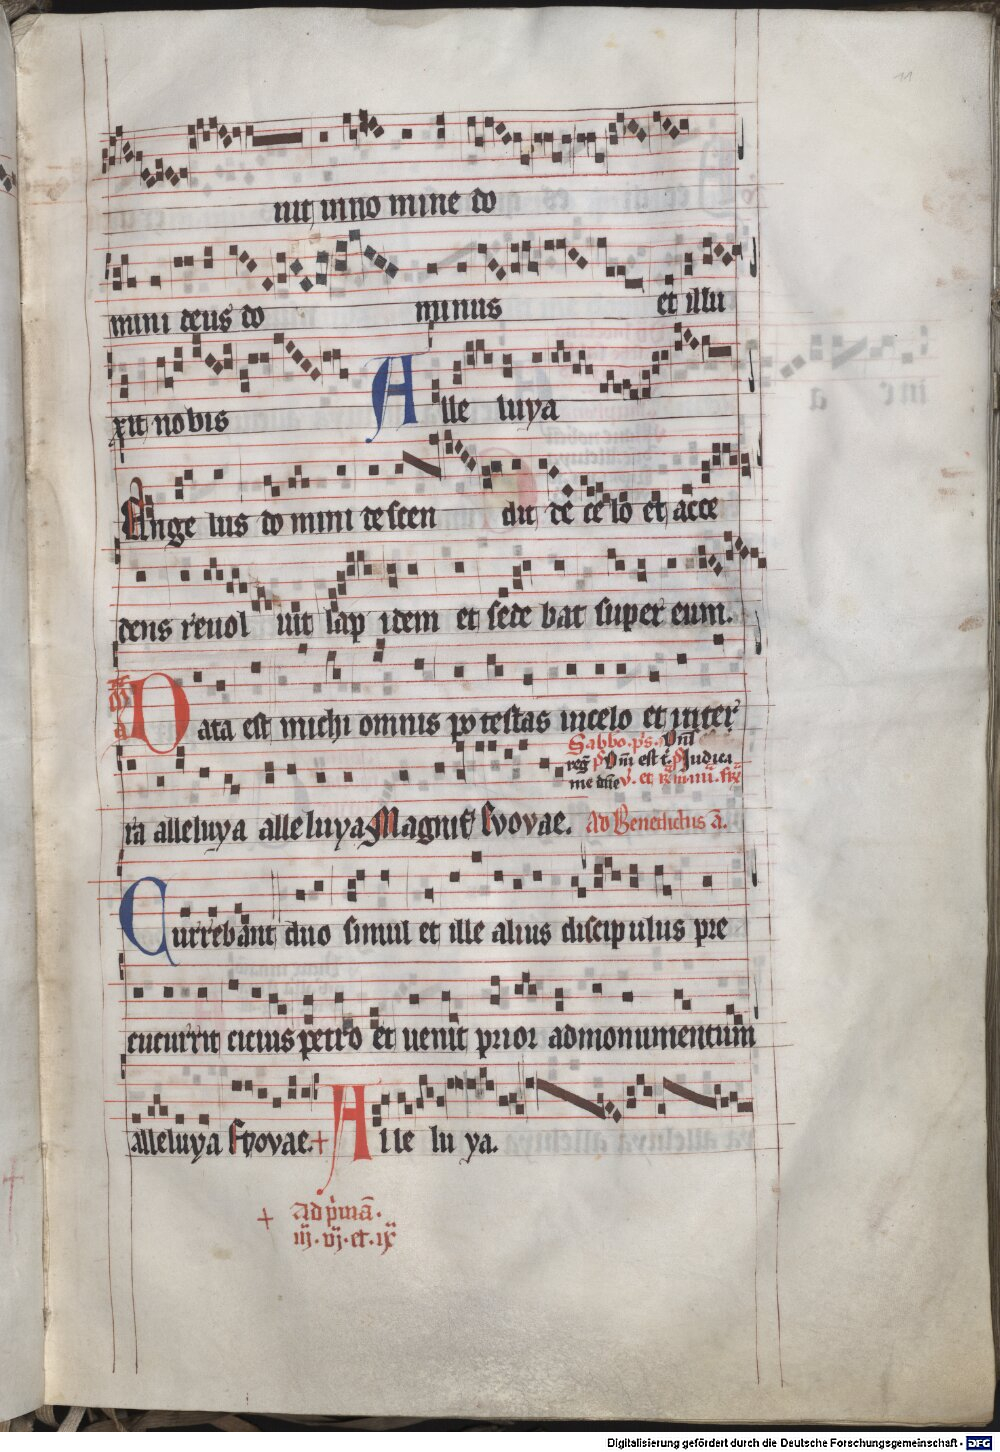 11
nit in no mine do
mini deus do minus et illu
xit nobis Alle luya
Ange lus do mini descen dit de celo et acce
dens reuol uit lap idem et sede bat super eum.
Data est michi omnis potestas in celo et in ter
Sabbo. p̄s. Dn̄s
reg̅ p̄s Dn̄i est t. p̄s Judica
me dn̄e
ra alleluya alleluya Magnif Evovae. Ad Benedictus a̅.
Currebant duo simul et ille alius discipulus pre
cucurrit cicius petro et uenit prior ad monumentum
alleluya Evovae. + Alle lu ya.
+ Ad p̍mā.
iij. vj. et. ix
Digitalisierung gefördert durch die Deutsche Forschungsgemeinschaft - DFG